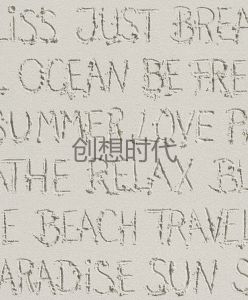 iSS JUST BREA
L OCEAN BE FRE
SUMMER LOVE R
创想时代
ATHE RELAX BL
E BEACH TRAVEL
ARADiSE SUN S